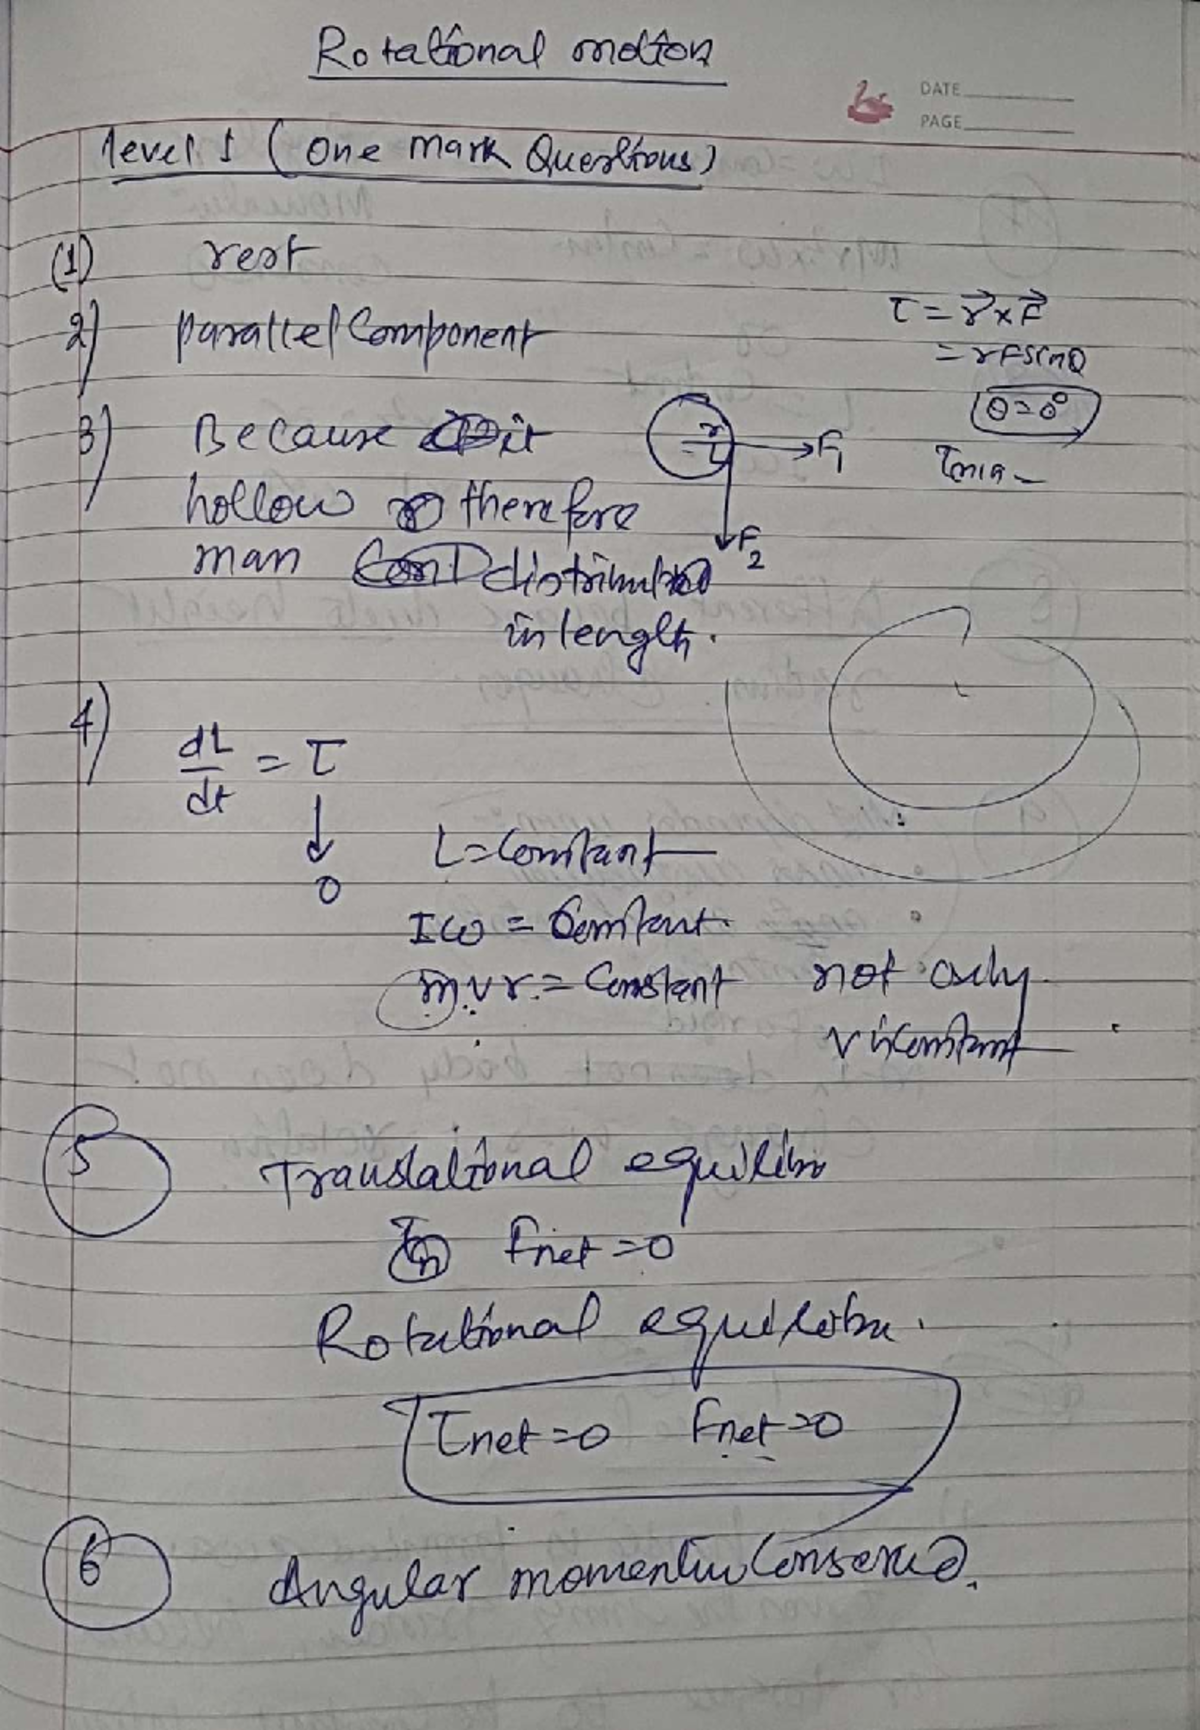 Rotational motion
DATE
PAGE
level 1 (One Mark Questions)
(1) rest
2) parallel Component
τ = r⃗ × F⃗
= rFsinθ
θ = 0°
τmin
3) Because it
hollow therefore
mass distributed
in length.
r
F₁
F₂
4) dL/dt = τ
↓
0
L = Constant
Iω = Constant.
mvr = Constant not only
v is Constant
5 Translational equilibriu
Fnet = 0
Rotational equilibriu.
τnet = 0 Fnet = 0
6 Angular momentum Conserved.